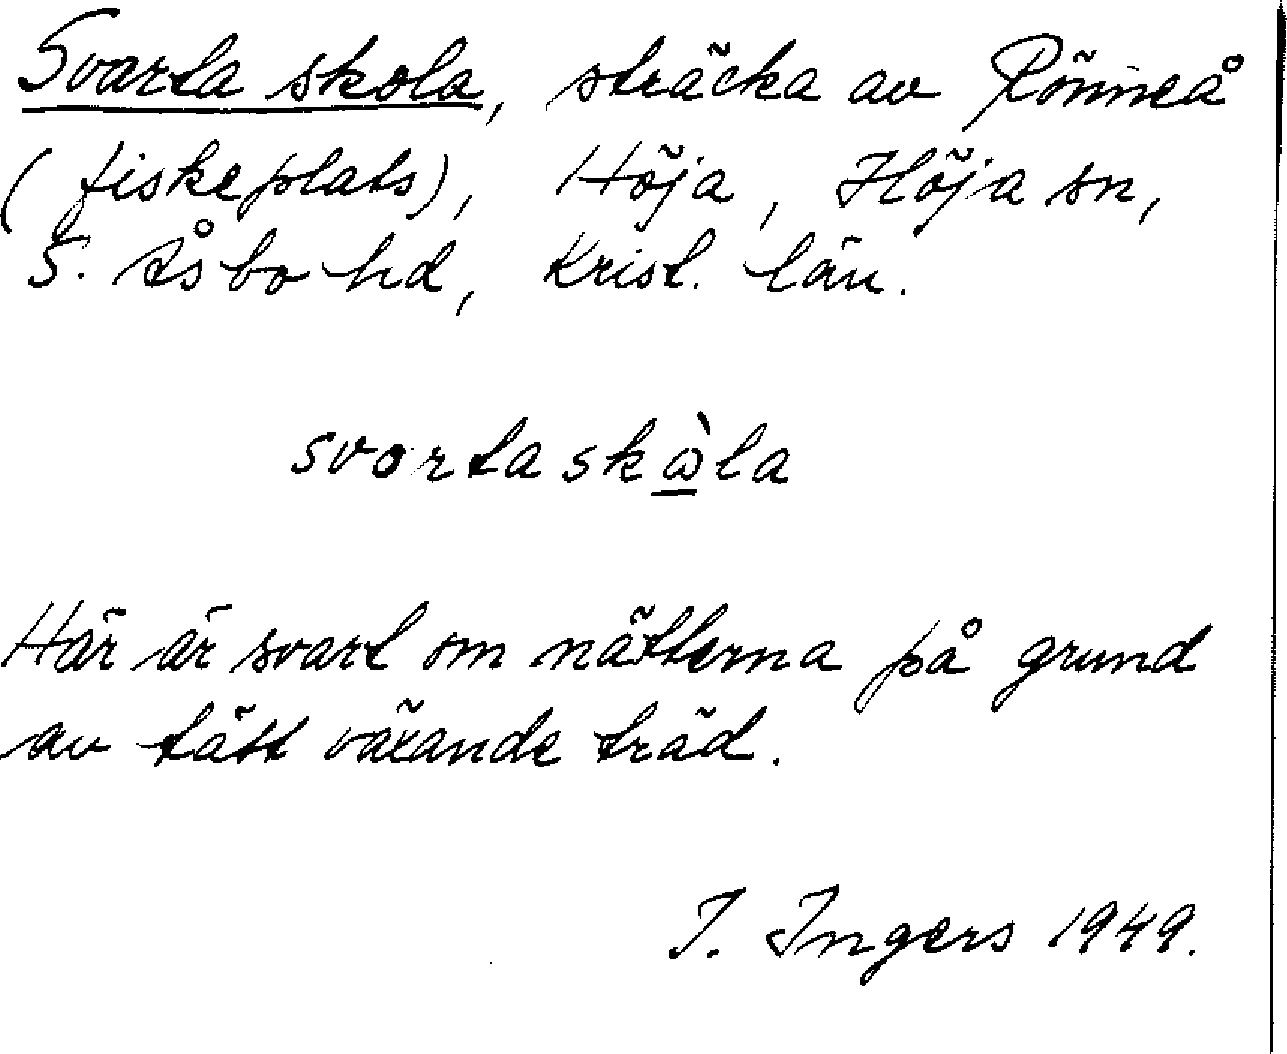 Svarta skola, sträcka av Rönneå
(fiskeplats), Höja, Höja sn,
S. Åsbo hd, Krist. län.
svortaskὼla
Här är svart om nätterna på grund
av tätt växande träd.
I. Ingers 1949.